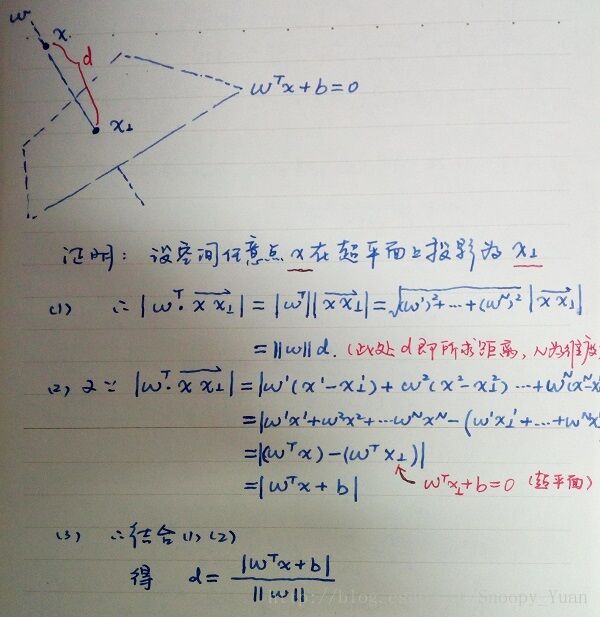 w
x
d
x⊥
wᵀx+b=0
证明: 设空间任意点 x 在超平面上投影为 x⊥
(1) ∴ |wᵀ·xx⊥| = |wᵀ||xx⊥| = √((w¹)²+…+(wᴺ)²) |xx⊥|
= ||w|| d. (此处 d 即所求距离, N为维度
(2) 又∵ |wᵀ·xx⊥| = |w¹(x¹-x⊥¹)+w²(x²-x⊥²)…+wᴺ(xᴺ-x
= |w¹x¹+w²x²+…wᴺxᴺ-(w¹x⊥¹+…+wᴺx
= |(wᵀx)-(wᵀx⊥)|
= |wᵀx+b| wᵀx⊥+b=0 (超平面)
(3) ∴ 结合(1),(2)
得 d = |wᵀx+b| / ||w||
http://blog.csdn.net/Snoopy_Yuan